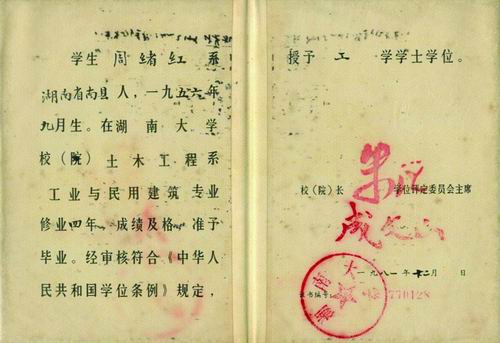 学生 周绪红 系
湖南省南县人，一九五六年
九月生。在湖南大学
校（院）土木工程系
工业与民用建筑专业
修业四年、成绩及格，准予
毕业。经审核符合《中华人
民共和国学位条例》规定，
授予 工 学学士学位。
校（院）长
学位评定委员会主席
一九八一年十二月 日
证书编号 770128
湖南大